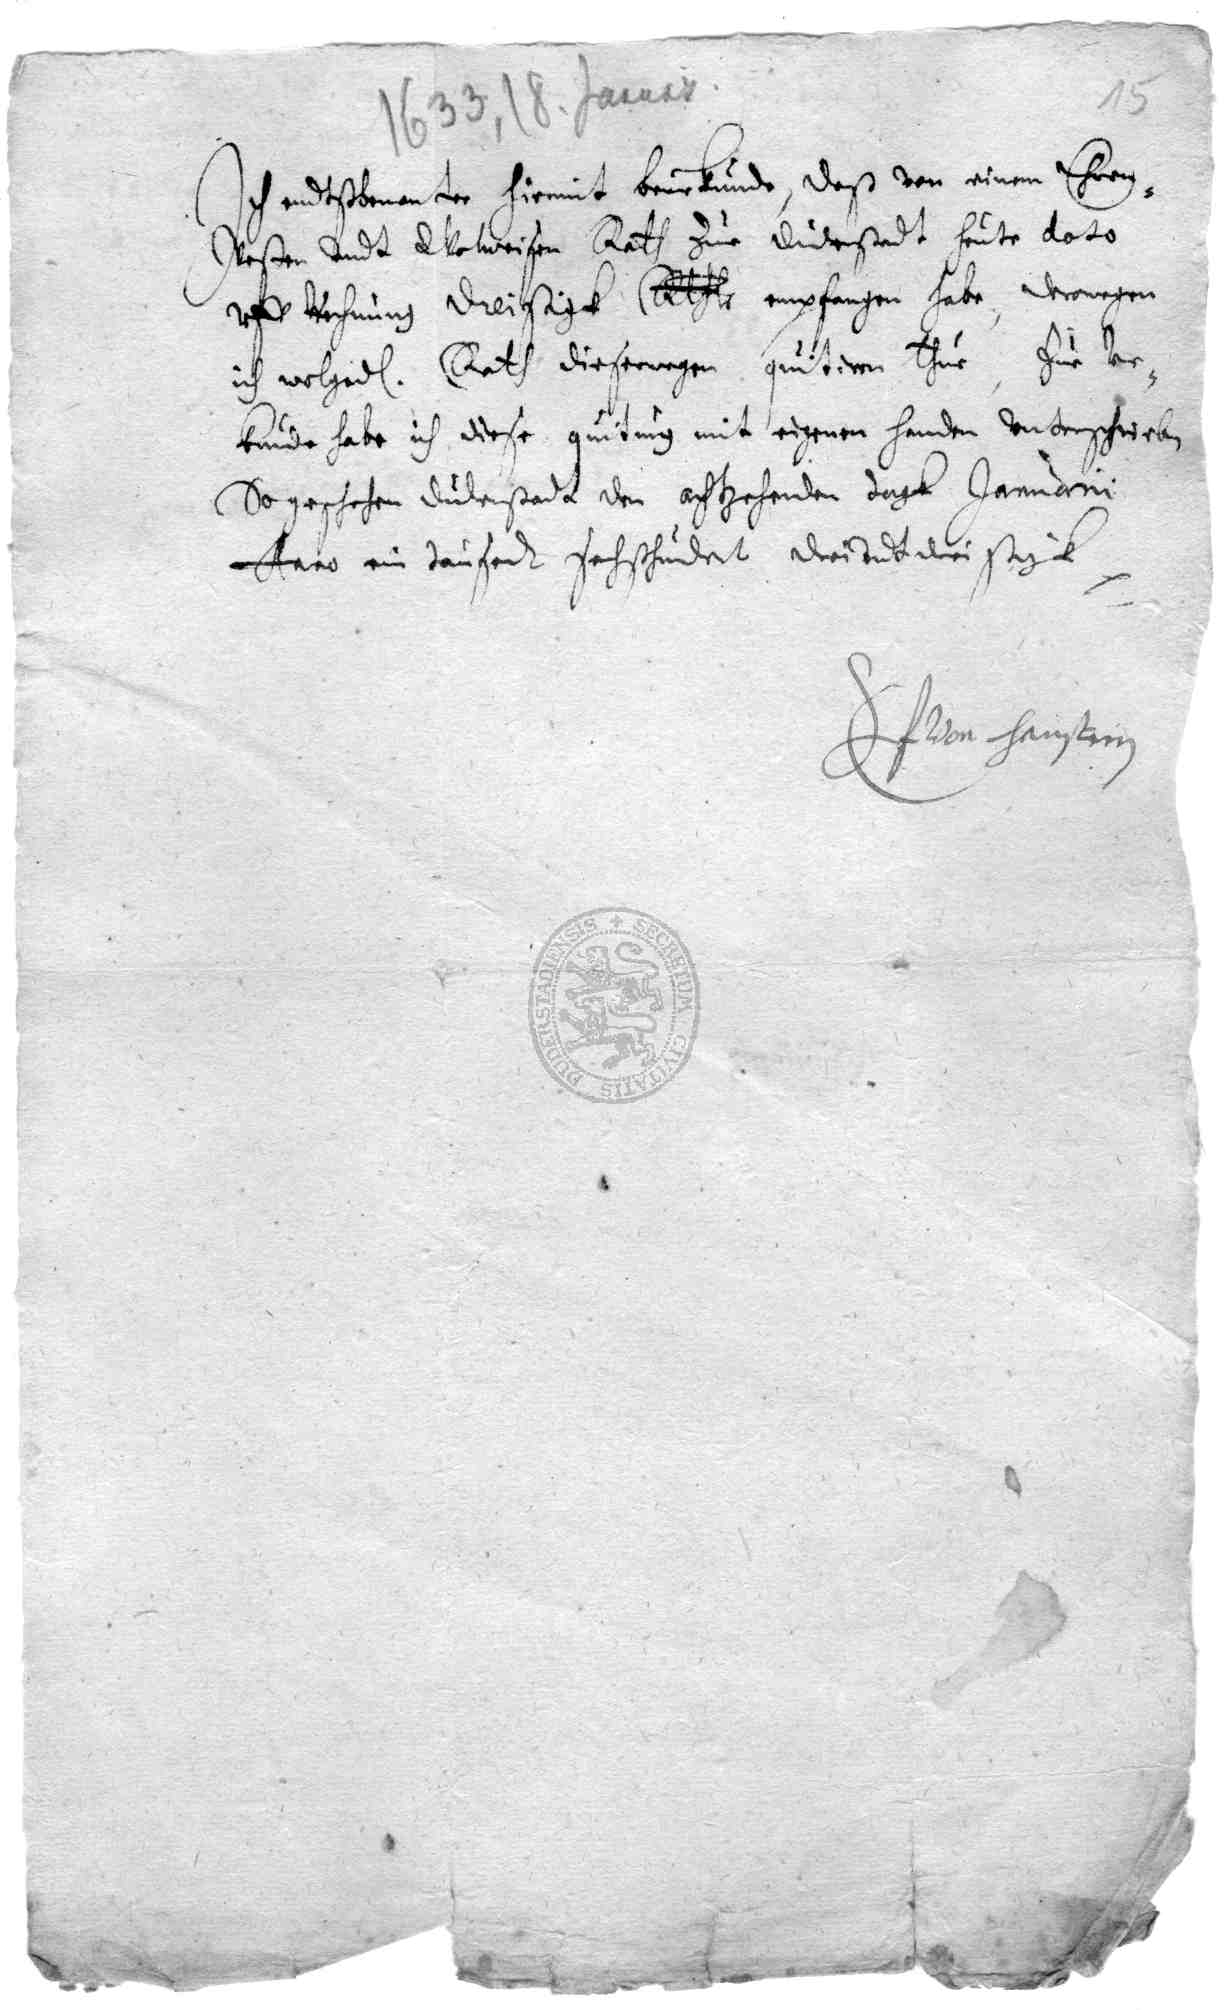 1633, 18. Januar.
15
Ich endtsbenanter hiermit beurkunde, daß von einem Ehren-
vesten undt Wolweisen Rath zur Duderstadt heute dato
uff Rechnung dreissigk Rthlr empfangen habe, derowegen
ich wolged. Rath dieserwegen quitiren thue, Zur Ur-
kunde habe ich diese quitung mit eigenen handen unterschrieben
So geschehen Duderstadt den achtzehenden tagk Januarii
Anno ein tausendt sechshundert drei undt dreissigk
von Hanstein
SECRETUM CIVITATIS DUDERSTADIENSIS